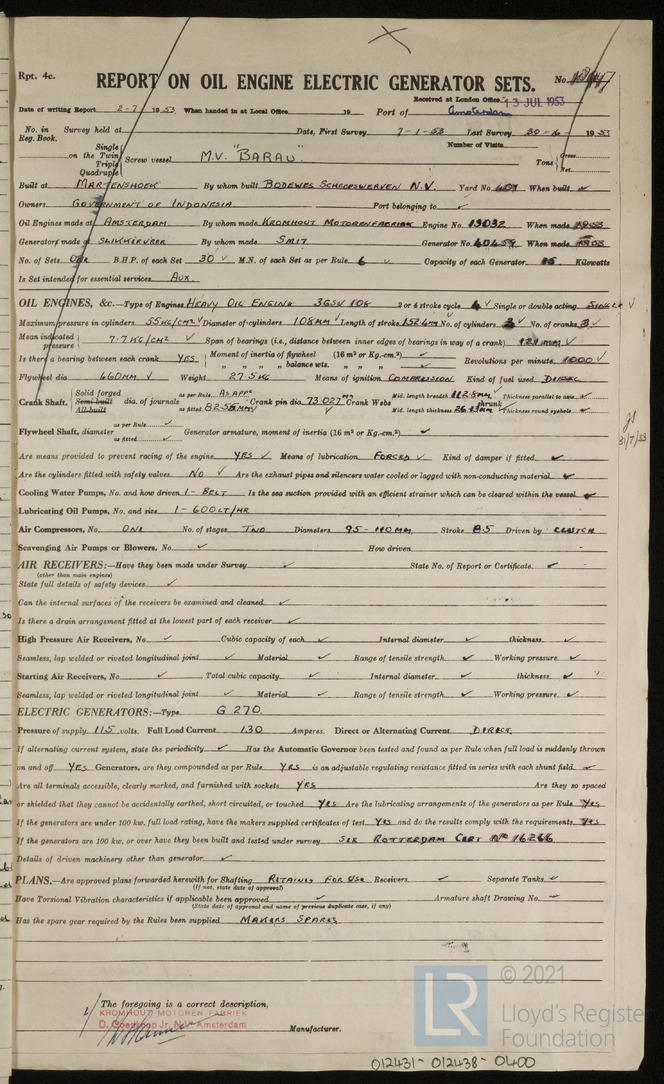 Rpt. 4c.
REPORT ON OIL ENGINE ELECTRIC GENERATOR SETS.
No.
Received at London Office 13 JUL 1953
Date of writing Report 2-7 1953 When handed in at Local Office 19 Port of Amsterdam
No. in Reg. Book. Survey held at Date, First Survey 7-1-53 Last Survey 30-6- 1953
Number of Visits
Single
on the Twin
Triple
Quadruple
Screw vessel M.V. "BARAU" Tons Gross Net
Built at MARTENSHOEK By whom built BODEWES SCHEEPSWERVEN N.V. Yard No. 409 When built ✓
Owners GOVERNMENT OF INDONESIA Port belonging to ✓
Oil Engines made at AMSTERDAM By whom made KROMHOUT MOTORENFABRIEK Engine No. 13032 When made 1953
Generators made at SLIKKERVEER By whom made SMIT Generator No. 40459 When made 1953
No. of Sets ONE B.H.P. of each Set 30 ✓ M.N. of each Set as per Rule 6 ✓ Capacity of each Generator 15 Kilowatts
Is Set intended for essential services AUX.
OIL ENGINES, &c.—Type of Engines HEAVY OIL ENGINE 3GSV 108 2 or 4 stroke cycle 4 ✓ Single or double acting SINGLE ✓
Maximum pressure in cylinders 55 KG/CM² ✓ Diameter of cylinders 108 MM ✓ Length of stroke 152.4 MM No. of cylinders 3 ✓ No. of cranks 3 ✓
Mean indicated pressure 7.7 KG/CM² ✓ Span of bearings (i.e., distance between inner edges of bearings in way of a crank) 121 MM ✓
Is there a bearing between each crank YES Moment of inertia of flywheel (16 m² or Kg.-cm.²) ✓
" " " balance wts. " " " ✓ Revolutions per minute 1000 ✓
Flywheel dia 660 MM ✓ Weight 27.5 KG Means of ignition COMPRESSION Kind of fuel used DIESEL
Crank Shaft, Solid forged Semi built All built dia. of journals as per Rule AS APPD as fitted 82.55 MM ✓ Crank pin dia 73.027 MM Crank Webs Mid. length breadth 112.5 MM Thickness parallel to axis ✓
Mid. length thickness shrunk Thickness round eyehole ✓
Flywheel Shaft, diameter as per Rule ✓ as fitted ✓ Generator armature, moment of inertia (16 m² or Kg.-cm.²) ✓
Are means provided to prevent racing of the engine YES ✓ Means of lubrication FORCED ✓ Kind of damper if fitted ✓
Are the cylinders fitted with safety valves NO ✓ Are the exhaust pipes and silencers water cooled or lagged with non-conducting material ✓
Cooling Water Pumps, No. and how driven 1 - BELT Is the sea suction provided with an efficient strainer which can be cleared within the vessel ✓
Lubricating Oil Pumps, No. and size 1 - 600 LT/HR
Air Compressors, No. ONE No. of stages TWO Diameters 95 - 110 MM Stroke 85 Driven by CLUTCH
Scavenging Air Pumps or Blowers, No. ✓ How driven
AIR RECEIVERS:—Have they been made under Survey ✓ State No. of Report or Certificate ✓
(other than main engines)
State full details of safety devices ✓
Can the internal surfaces of the receivers be examined and cleaned ✓
Is there a drain arrangement fitted at the lowest part of each receiver ✓
High Pressure Air Receivers, No. ✓ Cubic capacity of each ✓ Internal diameter ✓ thickness ✓
Seamless, lap welded or riveted longitudinal joint ✓ Material ✓ Range of tensile strength ✓ Working pressure ✓
Starting Air Receivers, No ✓ Total cubic capacity ✓ Internal diameter ✓ thickness ✓
Seamless, lap welded or riveted longitudinal joint ✓ Material ✓ Range of tensile strength ✓ Working pressure ✓
ELECTRIC GENERATORS:—Type G 270
Pressure of supply 115 volts. Full Load Current 130 Amperes. Direct or Alternating Current DIRECT
If alternating current system, state the periodicity ✓ Has the Automatic Governor been tested and found as per Rule when full load is suddenly thrown
on and off YES Generators, are they compounded as per Rule YES is an adjustable regulating resistance fitted in series with each shunt field ✓
Are all terminals accessible, clearly marked, and furnished with sockets YES Are they so spaced
or shielded that they cannot be accidentally earthed, short circuited, or touched YES Are the lubricating arrangements of the generators as per Rule YES
If the generators are under 100 kw. full load rating, have the makers supplied certificates of test YES and do the results comply with the requirements YES
If the generators are 100 kw. or over have they been built and tested under survey SEE ROTTERDAM CERT No 16266
Details of driven machinery other than generator ✓
PLANS.—Are approved plans forwarded herewith for Shafting RETAINED FOR USE Receivers ✓ Separate Tanks ✓
(If not, state date of approval)
Have Torsional Vibration characteristics if applicable been approved ✓ Armature shaft Drawing No. ✓
(State date of approval and name of previous duplicate case, if any)
Has the spare gear required by the Rules been supplied MAKERS SPARES
31/7/53
The foregoing is a correct description,
KROMHOUT MOTOREN FABRIEK
D. Goedkoop Jr. N.V. Amsterdam
Manufacturer.
LR
© 2021
Lloyd's Register
Foundation
012431-012438-0400